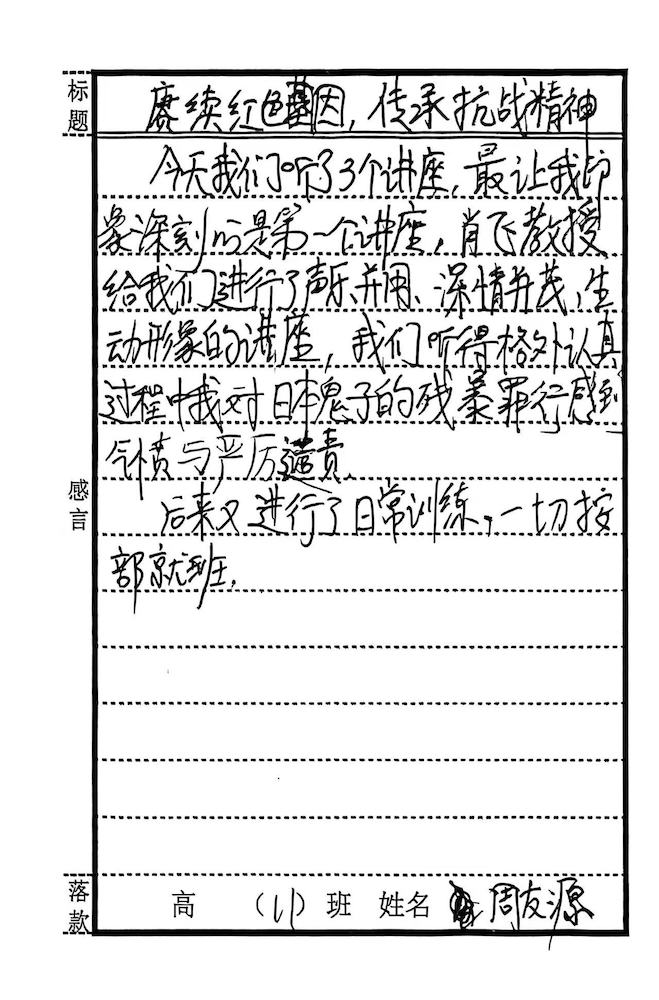 标题
赓续红色基因，传承抗战精神
今天我们听了3个讲座，最让我印
象深刻的是第一个讲座，肖飞教授
给我们进行了声乐并用、深情并茂，生
动形象的讲座，我们听得格外认真
过程中我对日本鬼子的残暴罪行感到
气愤与严厉谴责.
感言
后来又进行了日常训练，一切按
部就班.
落款
高 （11）班 姓名 周友源